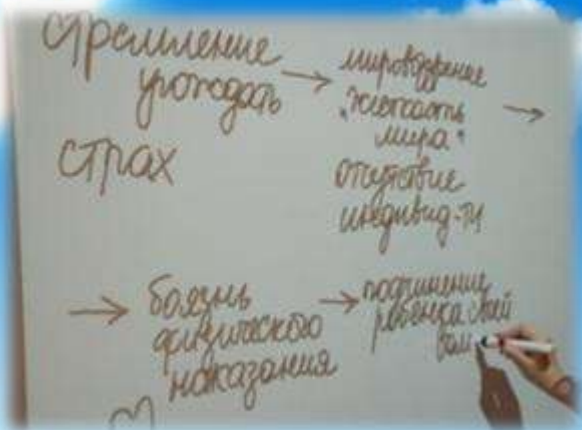 стремление
угождать →
страх
мировоззрение
мира" →
отсутствие
индивид-ти
→ боязнь
физического
наказания
→ подчинение
ребенка своей